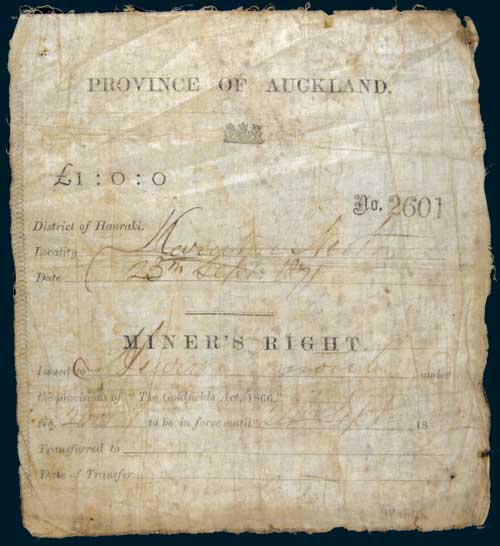 PROVINCE OF AUCKLAND.
£1:0:0
No. 2601
District of Hauraki.
Locality
Date 25th Sept. 1871
MINER'S RIGHT
Issued to under
the provisions of "The Goldfields Act, 1866,"
No. to be in force until 18
Transferred to
Date of Transfer